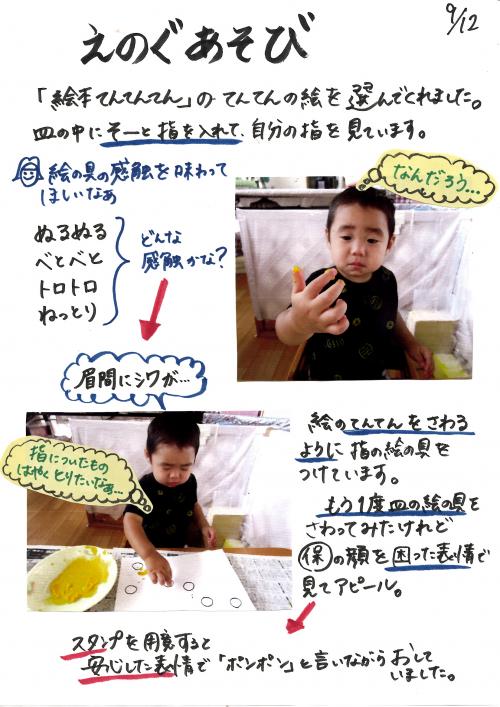 9/12
えのぐあそび
「絵手てんてんてん」の てんてんの絵を選んでくれました。
皿の中にそーと指を入れて、自分の指を見ています。
絵の具の感触を味わって
ほしいなぁ
なんだろう…
ぬるぬる
べとべと
トロトロ
ねっとり
どんな
感触かな?
眉間にシワが…
指についたもの
はやく とりたいなぁ…
絵のてんてんをさわる
ように指の絵の具を
つけています。
もう1度皿の絵の具を
さわってみたけれど
保の顔を困った表情で
見てアピール。
スタンプを用意すると
安心した表情で「ポンポン」と言いながらおして
いました。